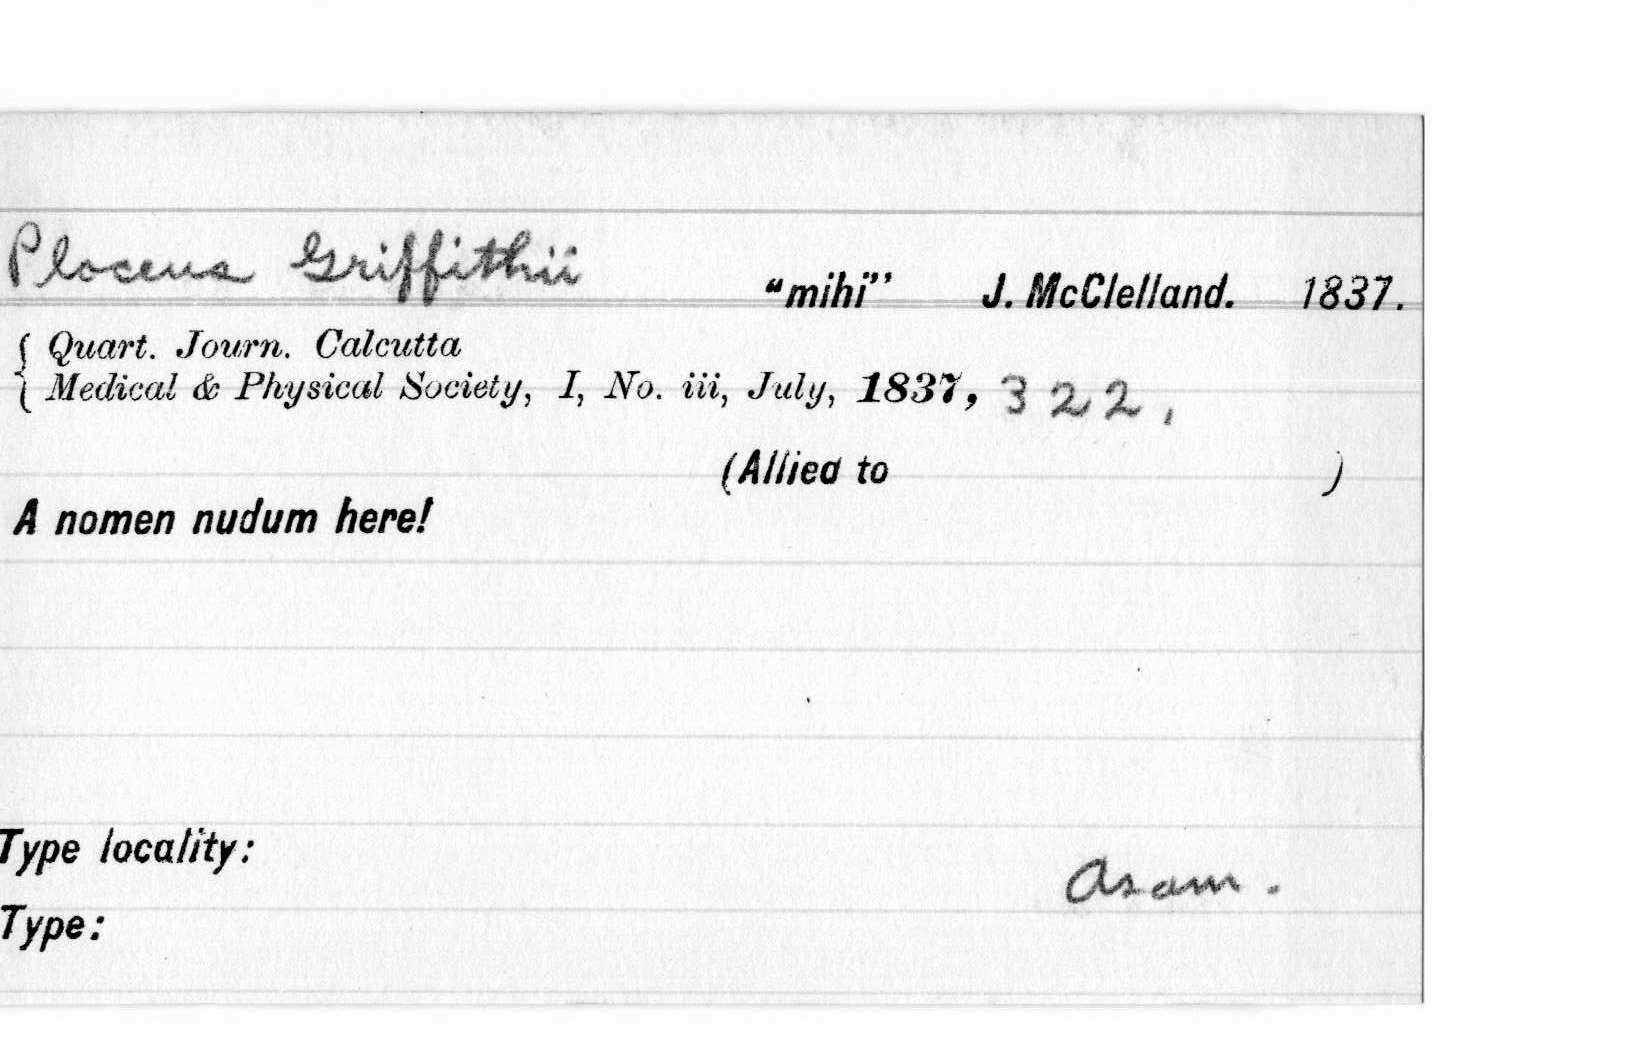 Ploceus Griffithii "mihi" J. McClelland. 1837.
{ Quart. Journ. Calcutta
Medical & Physical Society, I, No. iii, July, 1837, 322,
(Allied to )
A nomen nudum here!
Type locality:
Asam.
Type: